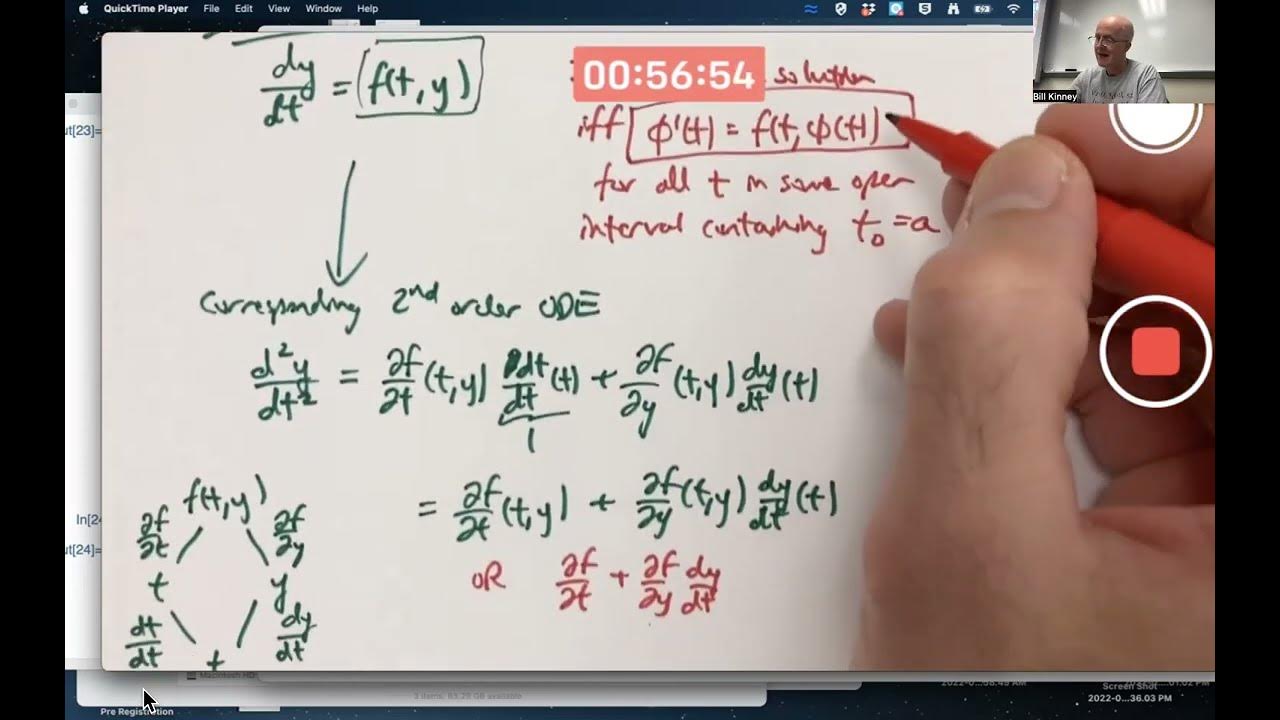 QuickTime Player File Edit View Window Help
Bill Kinney
00:56:54
dy/dt = f(t, y)
solution
iff φ'(t) = f(t, φ(t))
for all t in some open
interval containing t₀ = a
Corresponding 2nd order ODE
d²y/dt² = ∂f/∂t (t,y) dt/dt (t) + ∂f/∂y (t,y) dy/dt (t)
1
= ∂f/∂t (t,y) + ∂f/∂y (t,y) dy/dt (t)
OR ∂f/∂t + ∂f/∂y dy/dt
f(t,y)
∂f/∂t ∂f/∂y
t y
dt/dt dy/dt
t
ut[23]=
In[24
ut[24]=
Macintosh HD
3 items, 63.29 GB available
Screen Shot
2022-0...36.03 PM
Pre Registration